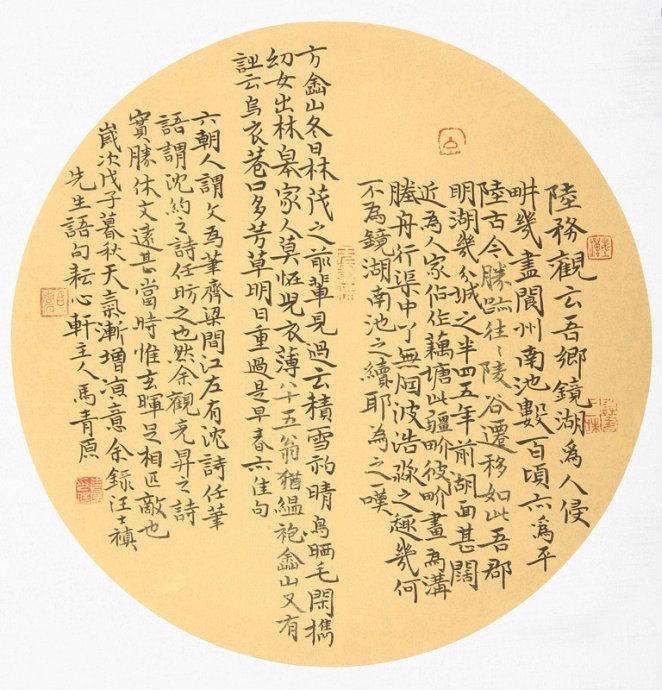 陸務觀云吾鄉鏡湖為人侵
畊幾盡閬州南池數百頃亦為平
陸古今勝跡往〻陵谷遷移如此吾郡
明湖幾分城之半四五年前湖面甚闊
近為人家佔作藕塘此疆畍彼畍畫為溝
塍舟行渠中了無烟波浩淼之趣幾何
不為鏡湖南池之續耶為之一嘆
方嵞山冬日林茂之前輩見過云積雪初晴鳥晒毛閑攜
幼女出林皋家人莫怪兒衣薄八十五翁猶縕袍嵞山又有
云烏衣巷口多芳草明日重過是早春亦佳句
六朝人謂文為筆齊梁間江左有沈詩任筆
語謂沈約之詩任昉之也然余觀彥昇之詩
實勝休文遠甚當時惟玄暉足相匹敵也
歲次戊子暮秋天氣漸增涼意余錄汪士禛
先生語句耘心軒主人馬青原